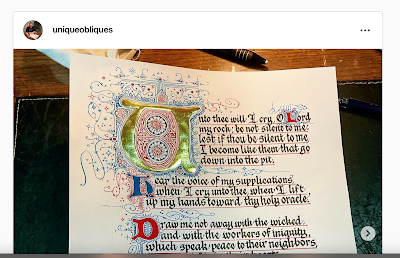 uniqueobliques
Unto thee will I cry, O Lord
my rock; be not silent to me:
lest if thou be silent to me,
I become like them that go
down into the pit.
Hear the voice of my supplications,
when I cry unto thee, when I lift
up my hands toward thy holy oracle.
Draw me not away with the wicked,
and with the workers of iniquity,
which speak peace to their neighbors,